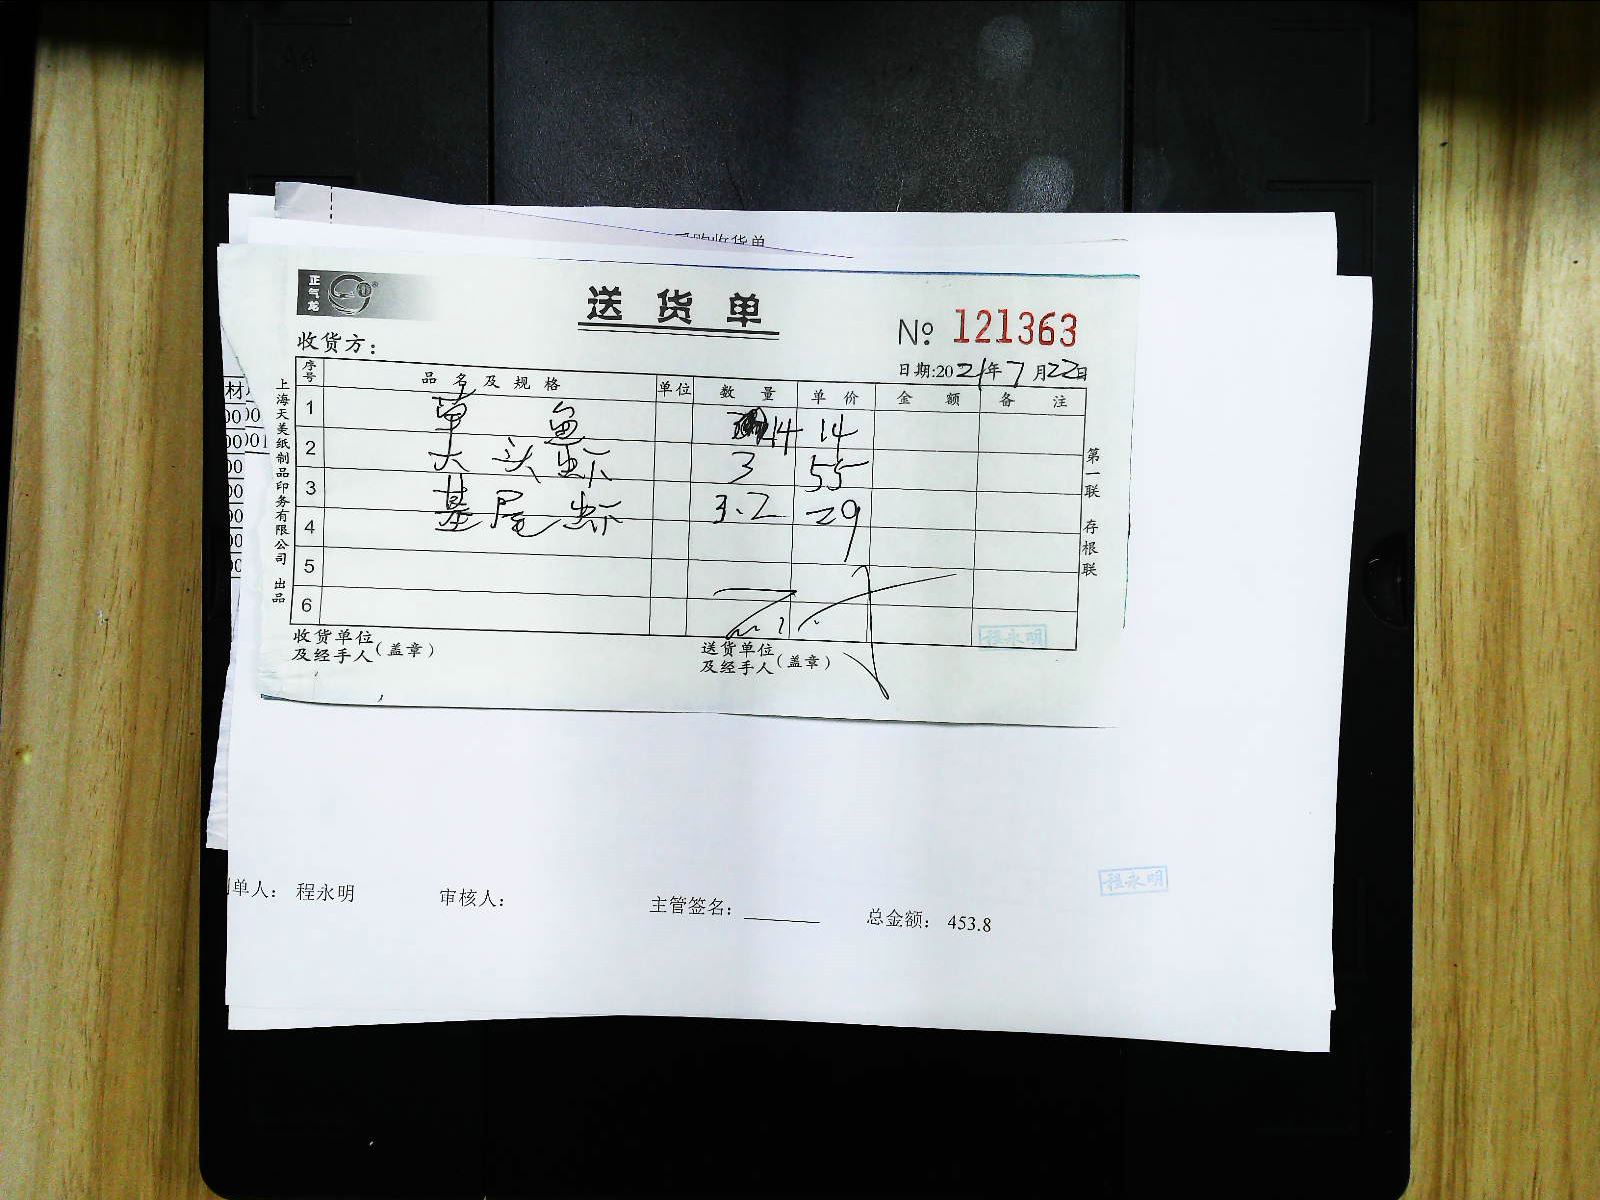 采购收货单
正气龙
送货单
№ 121363
收货方：
日期:2021年7月22日
序号 品名及规格 单位 数量 单价 金额 备注
1 草鱼 14 14
2 大头虾 3 55
3 基尾虾 3.2 29
4
5
6
收货单位及经手人（盖章）
送货单位及经手人（盖章）
程永明
上海天美纸制品印务有限公司 出品
第一联 存根联
材
00 00
00 001
00
00
00
00
00
单人： 程永明 审核人： 主管签名：______ 总金额： 453.8
程永明